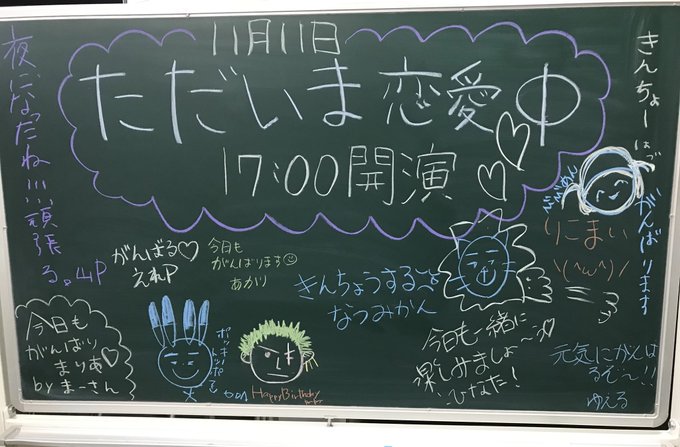 11月11日
ただいま恋愛中
17:00開演
きんちょー
がんばります
りこまい
\(^ω^)/
がんばる♡
えれP
今日も
がんばります☺
あかり
きんちょうする
なつみかん
今日も一緒に
楽しみましょ〜♡
ひなた!
元気にがんば
るぞ〜!!
ゆえる
今日も
がんばり
まりあ♡
by まーさん
Happy Birthday